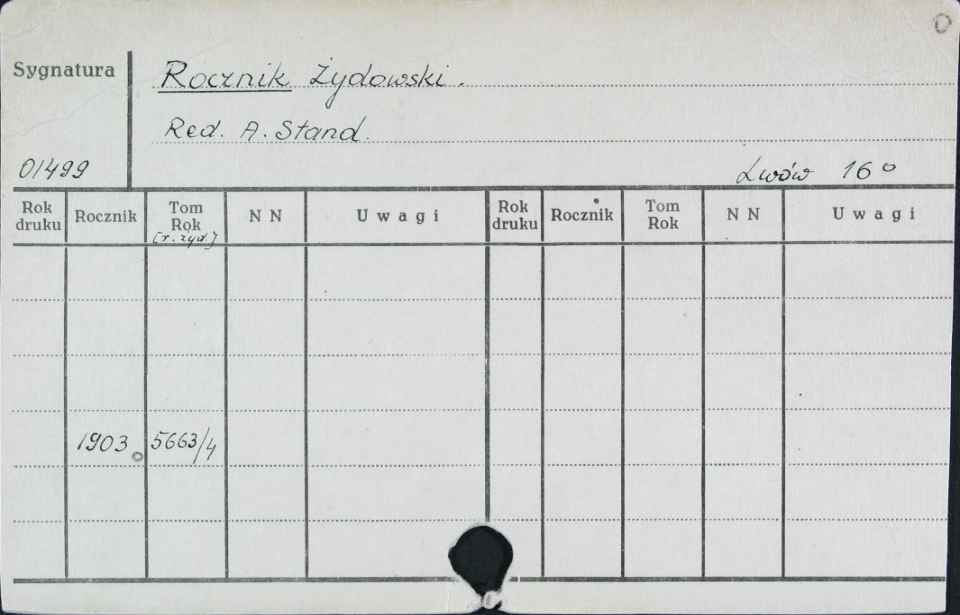 Sygnatura
Rocznik Żydowski.
Red. A. Stand.
01499
Lwów 16°
Rok druku Rocznik Tom Rok [r. żyd.] N N Uwagi Rok druku Rocznik Tom Rok N N Uwagi
1903 5663/4